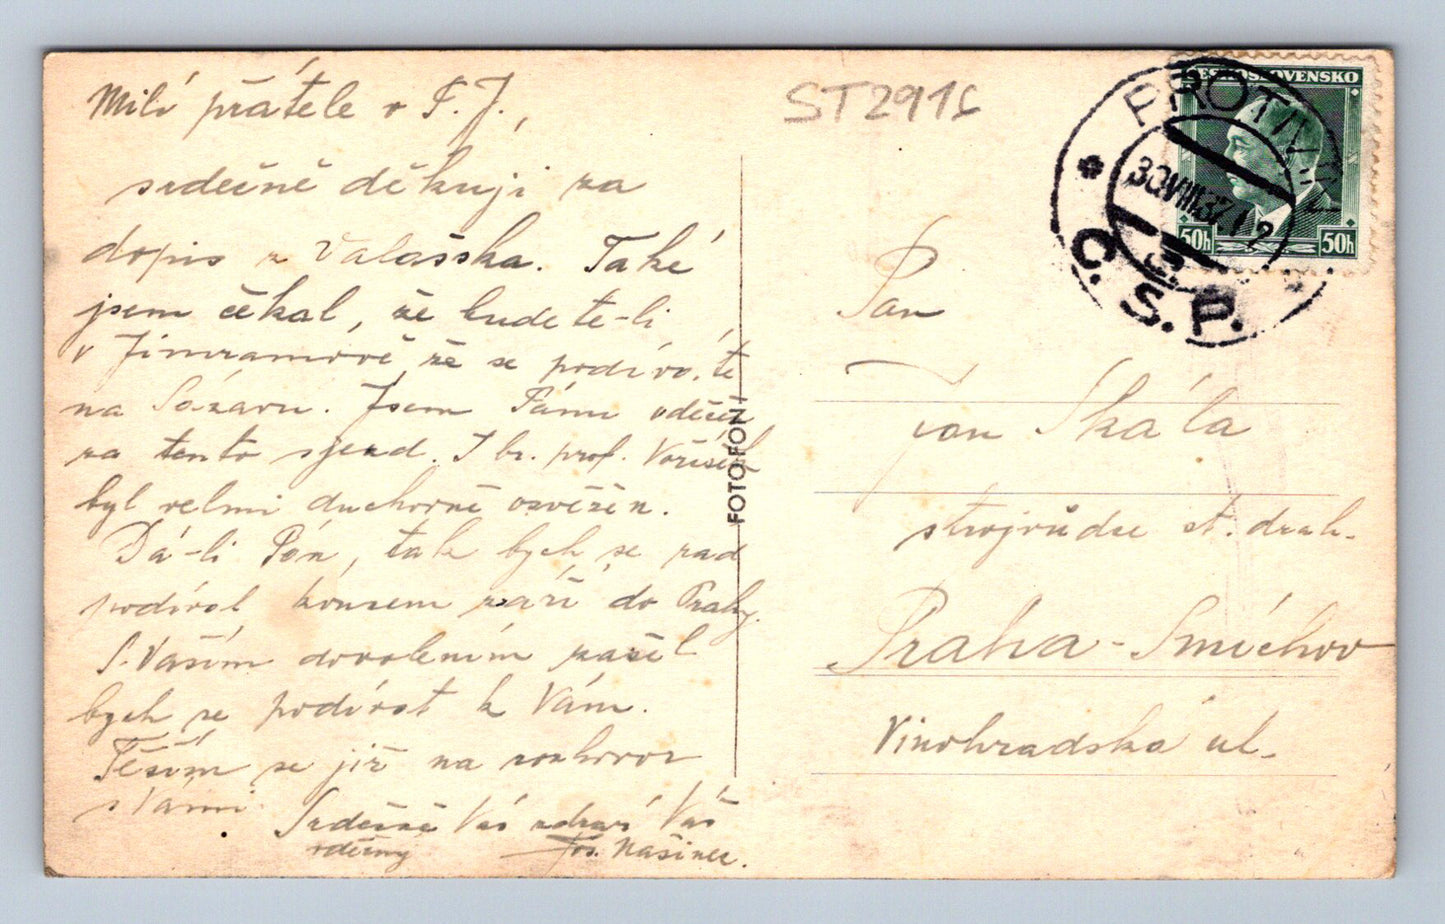 Milí přátelé v P. J.,
srdečně děkuji za
dopis z Valašska. Také
jsem čekal, že budete-li
v Jimramově že se podívá te
na Sázavu. Jsem Pánu vděčen
za tento sjezd. I br. prof. Voříšek
byl velmi duchovně osvěžen.
Dá-li Pán, tak bych se rad
podíval koncem září do Prahy.
S Vaším dovolením zašel
bych se podívat k Vám.
Těším se již na rozhovor
s Vámi
Srdečně Vás zdraví Váš
vděčný Jos. Mašinec.
FOTO FON
ST2916
ČESKOSLOVENSKO
50h 50h
PROTIVÍN
30.VIII.37.12
Č.S.P.
Pan
Jan Skála
strojvůdce st. drah.
Praha - Smíchov
Vinohradská ul.